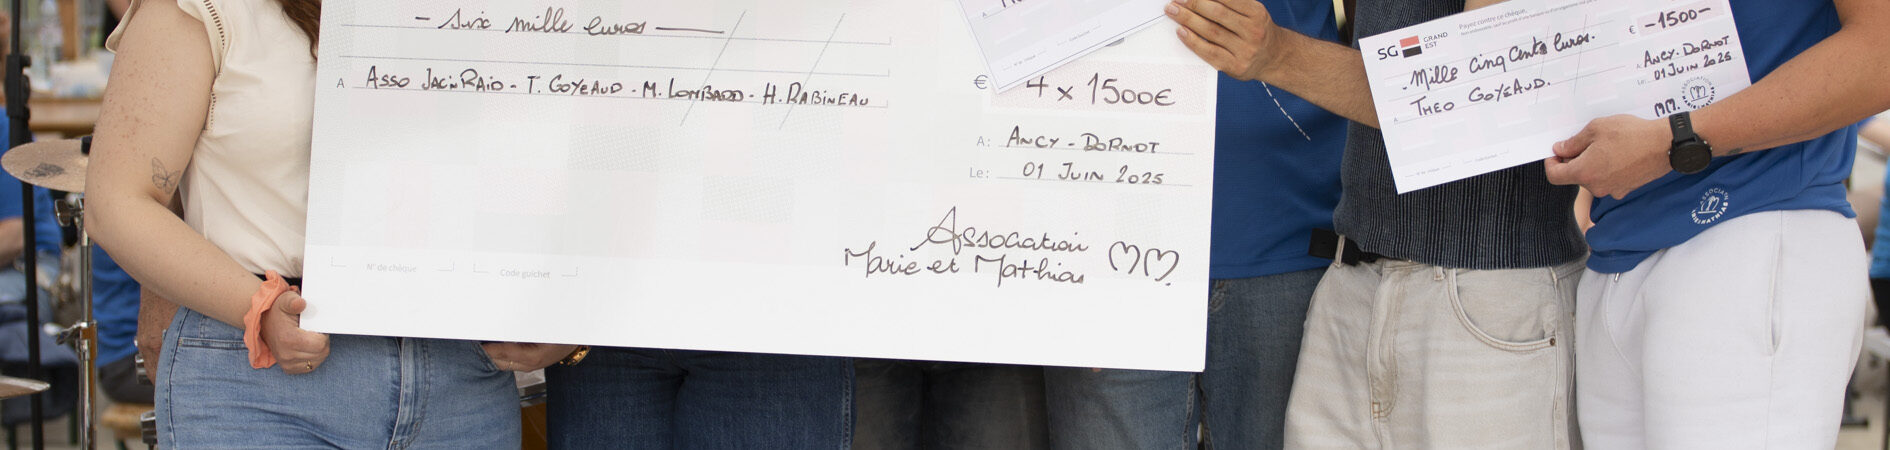 - Six mille euros -
A ASSO JACNRAID - T. GOYEAUD - M. LOMBARD - H. RABINEAU
€ 4 x 1500€
A: ANCY - DORNOT
Le: 01 JUIN 2025
Association
Marie et Mathias MM.
N° de chèque Code guichet
Payez contre ce chèque,
SG GRAND EST
€ -1500-
- Mille cinq cents euros.
A THEO GOYEAUD.
A: ANCY-DORNOT
Le: 01 JUIN 2025
MM.